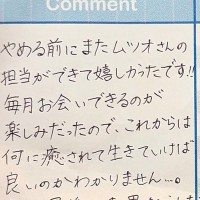 Comment
やめる前にまたムツオさんの
担当ができて嬉しかったです!!
毎月お会いできるのが
楽しみだったので、これからは
何に癒されて生きていけば
良いのかわかりません…。